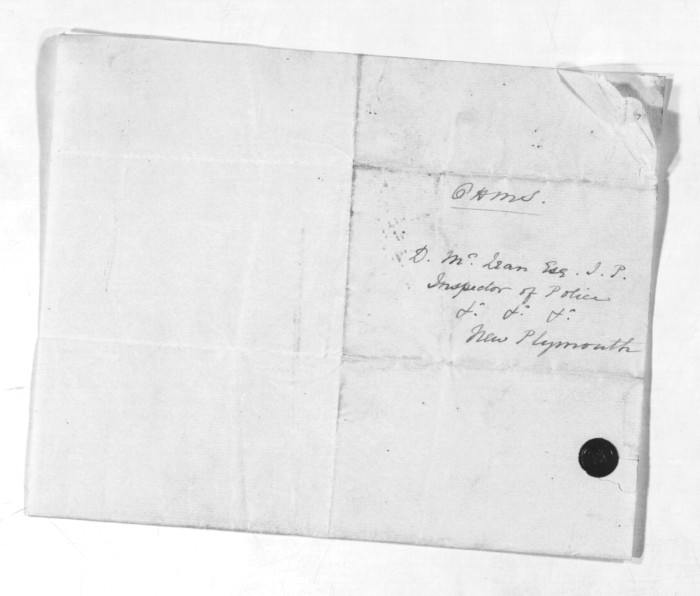 OHMS.
D. McLean Esq. J. P.
Inspector of Police
&c. &c. &c.
New Plymouth